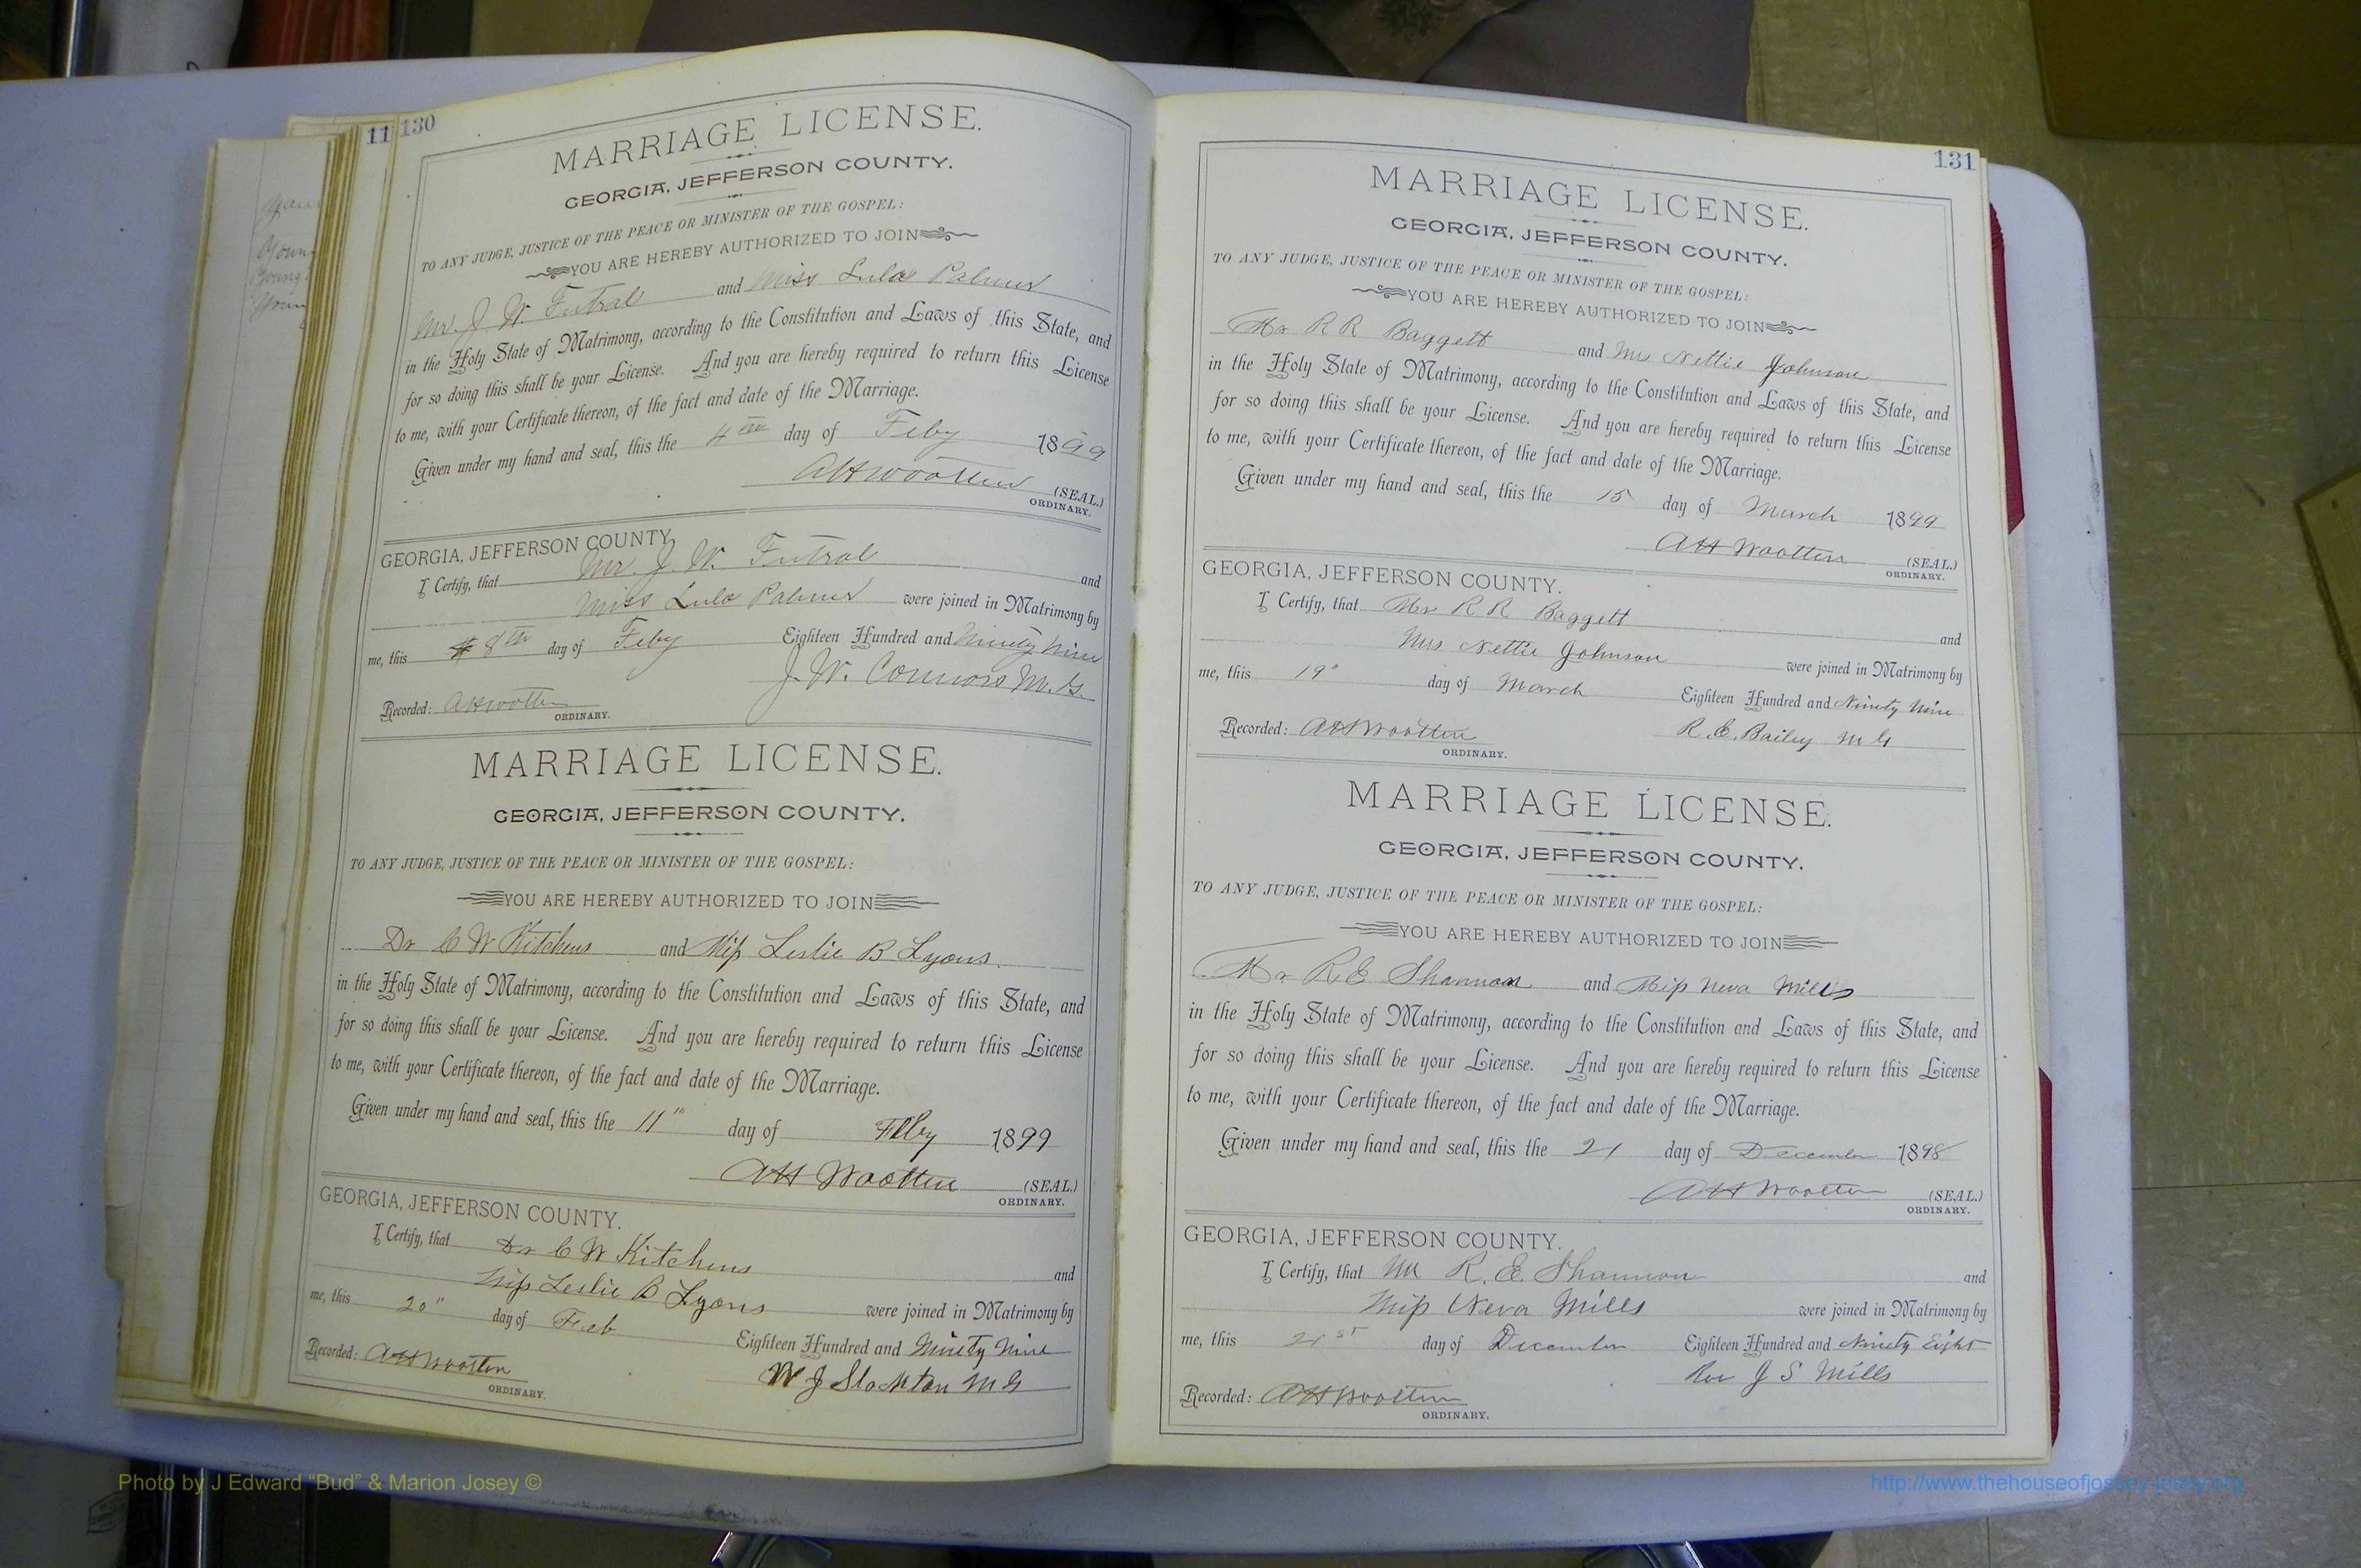 11 130
MARRIAGE LICENSE.
GEORGIA, JEFFERSON COUNTY.
TO ANY JUDGE, JUSTICE OF THE PEACE OR MINISTER OF THE GOSPEL:
YOU ARE HEREBY AUTHORIZED TO JOIN
Mr. J. W. Futral and Miss Lula Palmer
in the Holy State of Matrimony, according to the Constitution and Laws of this State, and
for so doing this shall be your License. And you are hereby required to return this License
to me, with your Certificate thereon, of the fact and date of the Marriage.
Given under my hand and seal, this the 4th day of Feby 1899
AH Wootten (SEAL.)
ORDINARY.
GEORGIA, JEFFERSON COUNTY.
I Certify, that Mr. J. W. Futral and
Miss Lula Palmer were joined in Matrimony by
me, this 8th day of Feby Eighteen Hundred and Ninety Nine
J. W. Connors M. G.
Recorded: AH Wootten
ORDINARY.
MARRIAGE LICENSE.
GEORGIA, JEFFERSON COUNTY.
TO ANY JUDGE, JUSTICE OF THE PEACE OR MINISTER OF THE GOSPEL:
YOU ARE HEREBY AUTHORIZED TO JOIN
Dr C W Kitchens and Miss Leslie B Lyons
in the Holy State of Matrimony, according to the Constitution and Laws of this State, and
for so doing this shall be your License. And you are hereby required to return this License
to me, with your Certificate thereon, of the fact and date of the Marriage.
Given under my hand and seal, this the 11" day of Feby 1899
AH Wootten (SEAL.)
ORDINARY.
GEORGIA, JEFFERSON COUNTY.
I Certify, that Dr C W Kitchens and
Miss Leslie B Lyons were joined in Matrimony by
me, this 20" day of Feb Eighteen Hundred and Ninety Nine
W J Stockton M G
Recorded: AH Wootten
ORDINARY.
131
MARRIAGE LICENSE.
GEORGIA, JEFFERSON COUNTY.
TO ANY JUDGE, JUSTICE OF THE PEACE OR MINISTER OF THE GOSPEL:
YOU ARE HEREBY AUTHORIZED TO JOIN
Mr R R Baggett and Mrs Nettie Johnson
in the Holy State of Matrimony, according to the Constitution and Laws of this State, and
for so doing this shall be your License. And you are hereby required to return this License
to me, with your Certificate thereon, of the fact and date of the Marriage.
Given under my hand and seal, this the 15 day of March 1899
AH Wootten (SEAL.)
ORDINARY.
GEORGIA, JEFFERSON COUNTY.
I Certify, that Mr R R Baggett and
Mrs Nettie Johnson were joined in Matrimony by
me, this 19" day of March Eighteen Hundred and Ninety Nine
R. E. Bailey M G
Recorded: AH Wootten
ORDINARY.
MARRIAGE LICENSE.
GEORGIA, JEFFERSON COUNTY.
TO ANY JUDGE, JUSTICE OF THE PEACE OR MINISTER OF THE GOSPEL:
YOU ARE HEREBY AUTHORIZED TO JOIN
Mr R E Shannon and Miss Neva Mills
in the Holy State of Matrimony, according to the Constitution and Laws of this State, and
for so doing this shall be your License. And you are hereby required to return this License
to me, with your Certificate thereon, of the fact and date of the Marriage.
Given under my hand and seal, this the 21 day of December 1898
AH Wootten (SEAL.)
ORDINARY.
GEORGIA, JEFFERSON COUNTY.
I Certify, that Mr R. E. Shannon and
Miss Neva Mills were joined in Matrimony by
me, this 21st day of December Eighteen Hundred and Ninety Eight
Rev J S Mills
Recorded: AH Wootten
ORDINARY.
Photo by J Edward “Bud” & Marion Josey ©
http://www.thehouseofjossey-josey.org